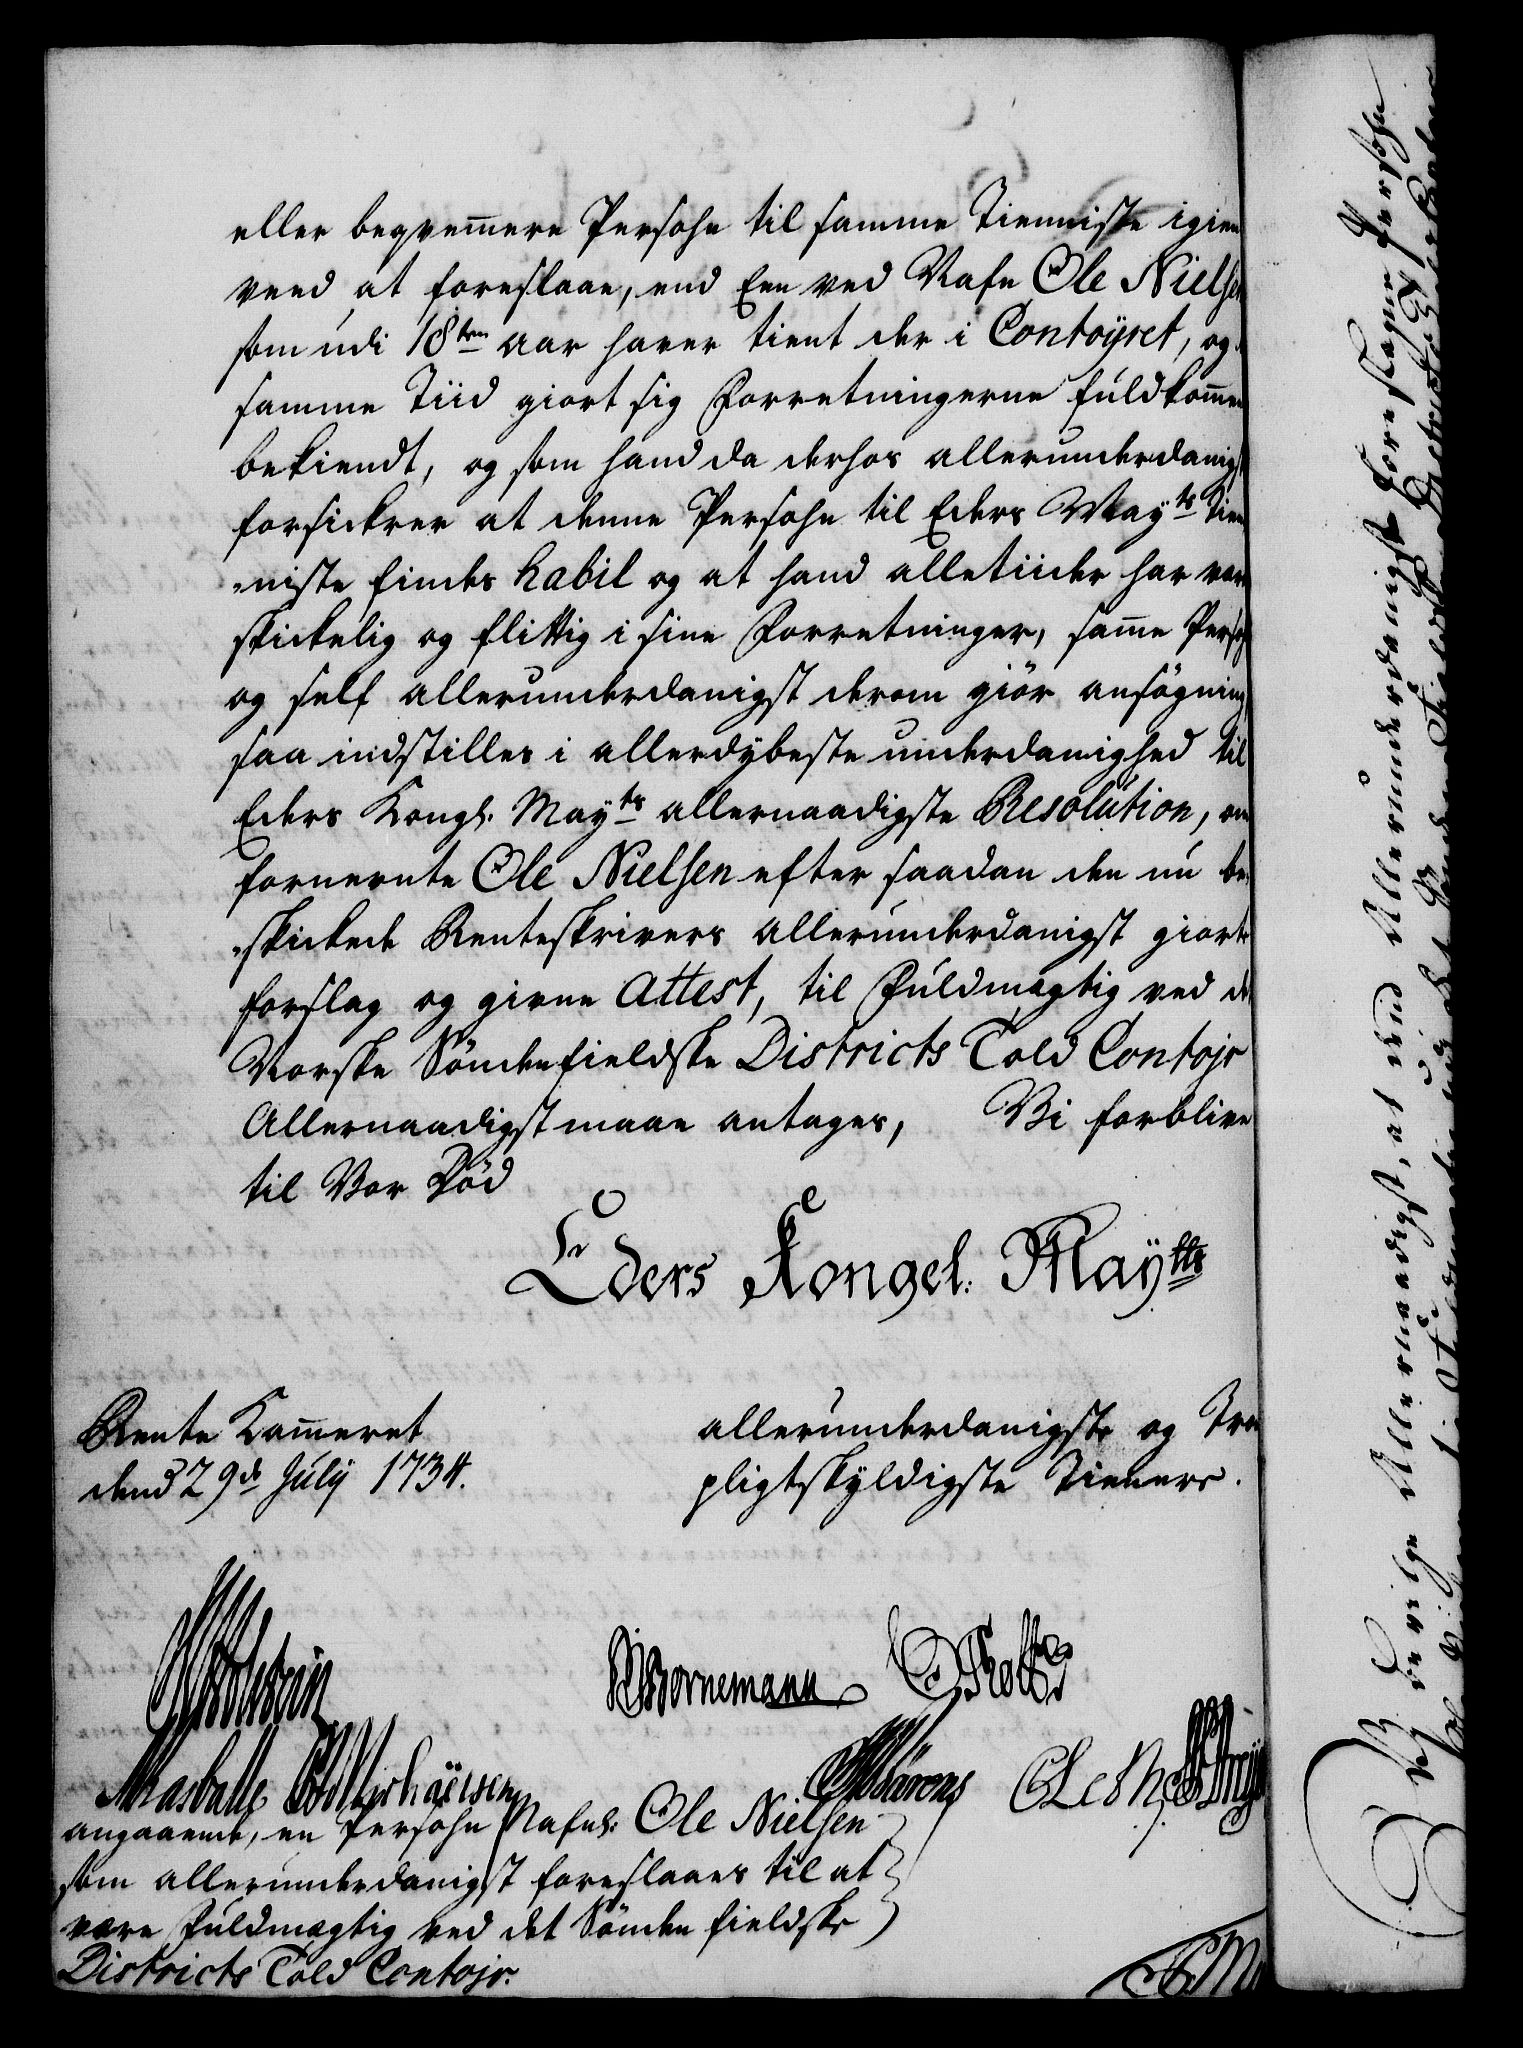 eller beqvemmere Persohn til samme Tienniste igien
veed at foreslaae, end Een ved Nafn Ole Nielsen
som udi 18ten aar haver tient der i Contoyret, og
samme Tiid giort sig Forretningerne fuldkommen
bekiendt, og som hand da derhos allerunderdanigst
forsickrer at denne Persohn til Eders Mayts Tien
-niste findes habil og at hand alletiider har være
skickelig og flittig i sine Forretninger, samme Persohn
og self allerunderdanigst derom giör ansögning,
saa indstilles i allerdybeste underdanighed til
Eders Kongl. Mayts allernaadigste Resolution, om
fornevnte Ole Nielsen efter saadan den nu be-
-skickede Renteskrivers allerunderdanigst giorte
forslag og givne Attest, til Fuldmægtig ved det
Norske Söndenfieldske Districts Told Contoir
Allernaadigst maae antages, Vi forblive
til Vor Död
Eders Kongel. Maytts
Rente Kammeret
dend 29de July 1734.
allerunderdanigste og Troe
pligtskyldigste Tienere.
Holstein
Bornemann
angaaende, en Persohn Nafnl: Ole Nielsen
som allerunderdanigst foreslaaes til at
være Fuldmægtig ved det Sönden fieldske
Districts Told Contoir.
Vi bevilge Allernaadigst, at end Allerunderdanigst foreslagne Persohn